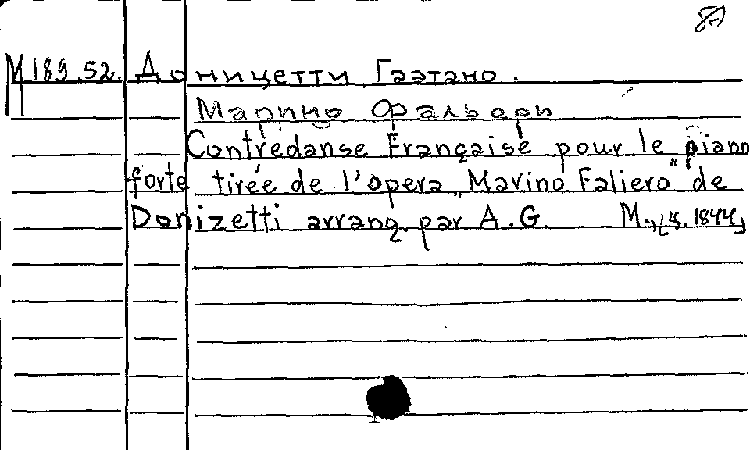 М 189.52. Доницетти Гаэтано.
Марино Фальери
Contredanse Française pour le piano
forte tirée de l'opera „Marino Faliero" de
Donizetti arrang. par A.G. М., 1844,